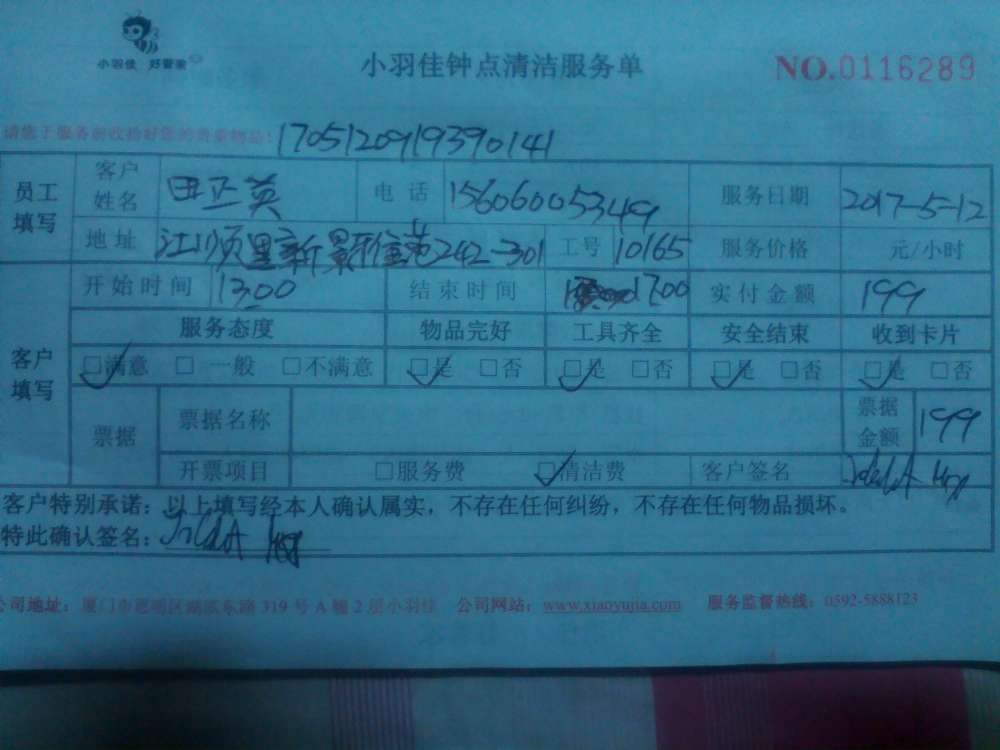 小羽佳 好管家
小羽佳钟点清洁服务单
NO.0116289
请您于服务前收拾好您的贵重物品!
1705120919390141
员工填写 客户姓名 田正英 电话 15606005349 服务日期 2017-5-12
地址 242-301 工号 10165 服务价格 元/小时
客户填写 开始时间 13:00 结束时间 17:00 实付金额 199
服务态度 物品完好 工具齐全 安全结束 收到卡片
☑满意 □一般 □不满意 ☑是 □否 ☑是 □否 ☑是 □否 ☑是 □否
票据 票据名称 票据金额 199
开票项目 □服务费 ☑清洁费 客户签名
客户特别承诺:以上填写经本人确认属实,不存在任何纠纷,不存在任何物品损坏。
特此确认签名:
公司地址:厦门市思明区湖滨东路319号A幢2层小羽佳 公司网站:www.xiaoyujia.com 服务监督热线:0592-5888123